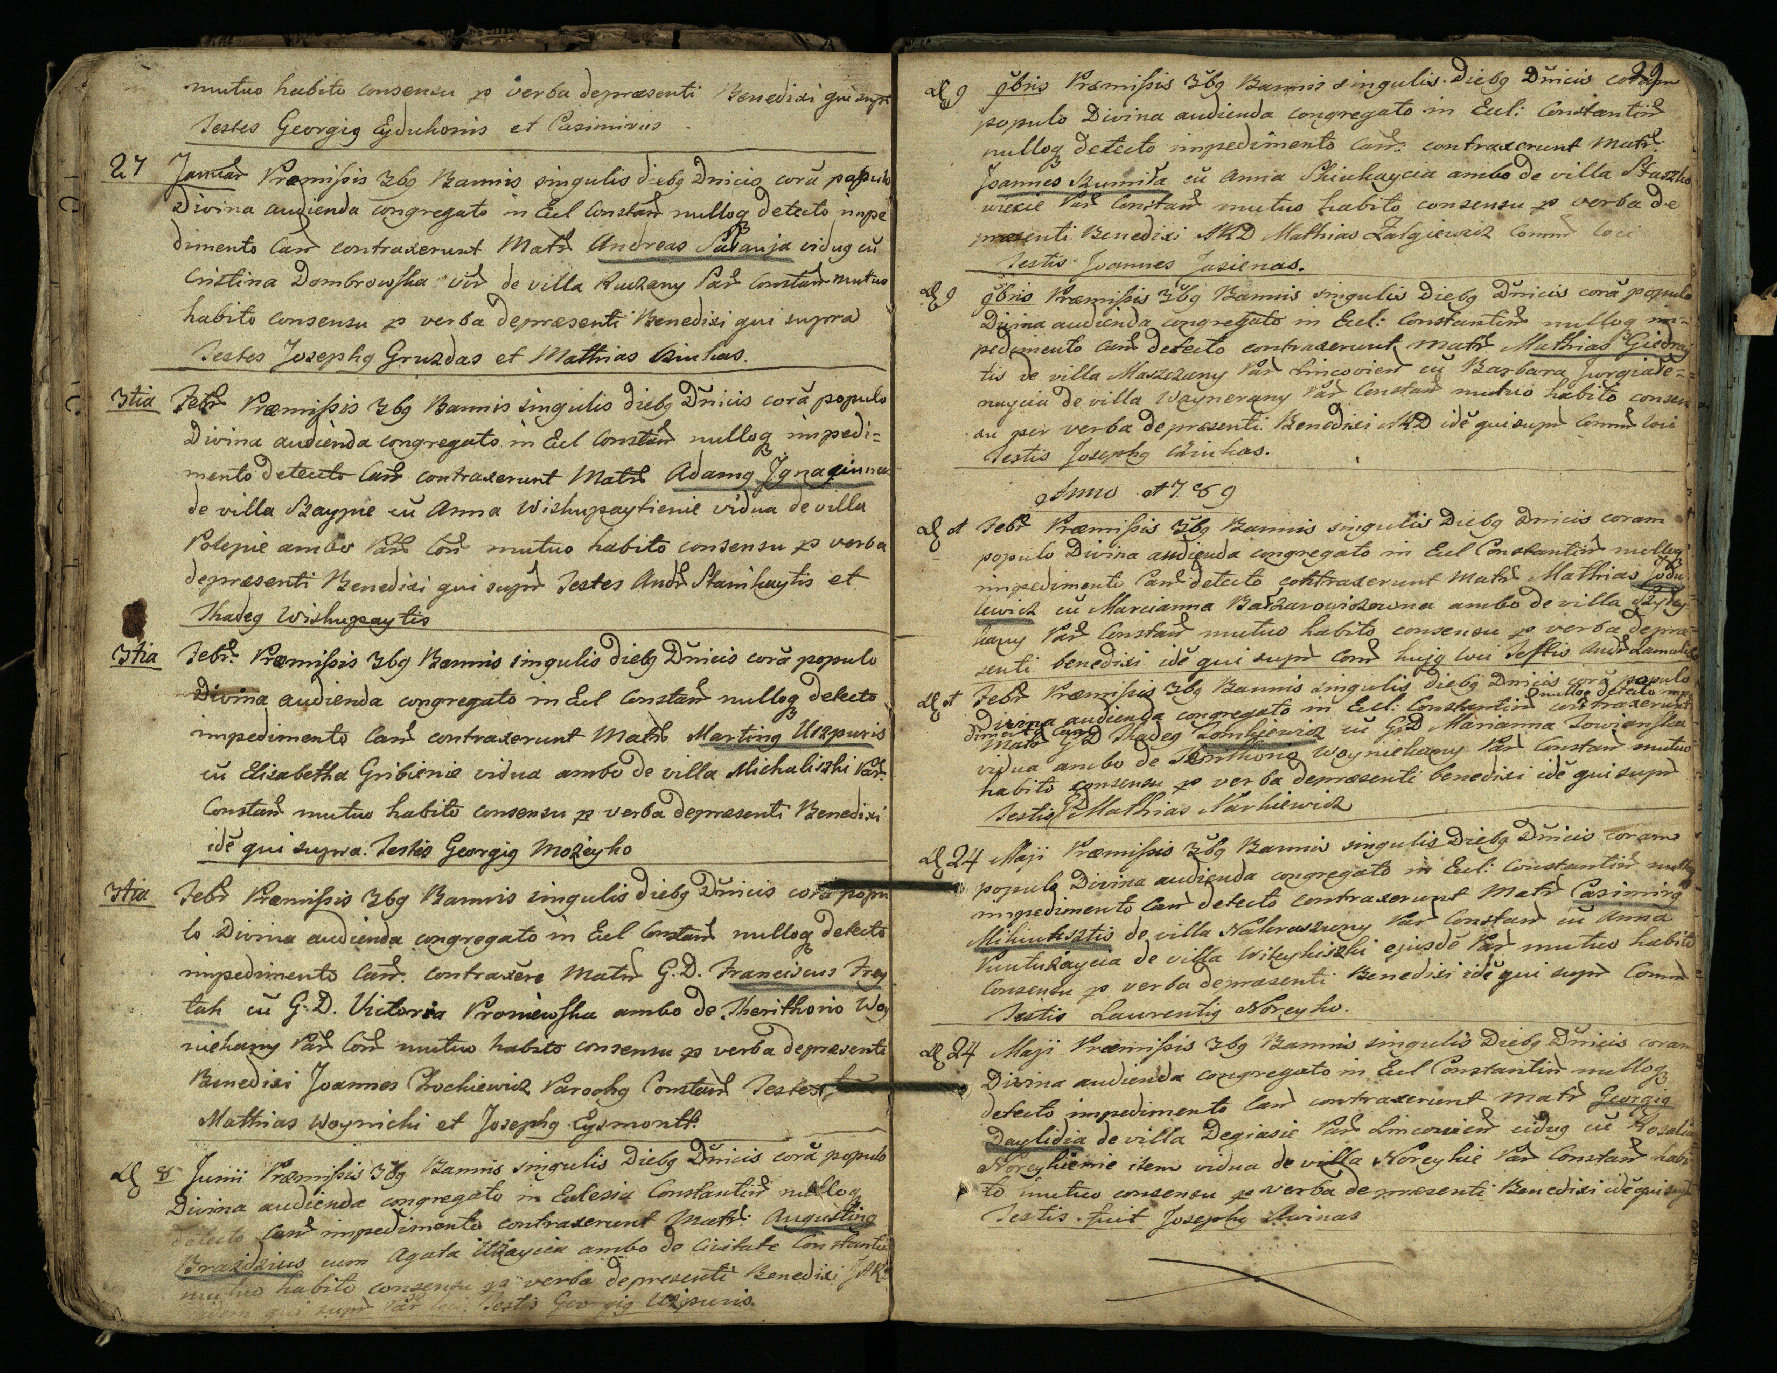 mutuo habito consensu p verba depræsenti Benedixi qui supr
Testes Georgig Eyduhonis et Casimirus
27 Januar Præmißis 3bg Bannis singulis diebg Dnicis corā populo
Divina audienda congregato in Eccl Constan nulloq detecto impe
dimento Can contraxerunt Matr Andreas Saranja vidug cū
Cristina Dombrowska vid de villa Ruczany Par Constan mutuo
habito consensu p verba depræsenti Benedixi qui supra
Testes Josephg Gruzdas et Mathias Kiuhas.
3tia Febr Præmißis 3bg Bannis singulis diebg Dnicis corā populo
Divina audienda congregato in Eccl Constan nulloq impedi=
mento detecto Can contraxerunt Matr Adamg Jgna
de villa Baypie cū Anna Wishupaytienie vidua de villa
Polepie ambo Par Con mutuo habito consensu p verba
depræsenti Benedixi qui supr Testes Andr Stanikaytis et
Thadeg Wishupaytis
3tia Febr. Præmißis 3bg Bannis singulis diebg Dnicis corā populo
Divina audienda congregato in Eccl Constan nulloq detecto
impedimento Can contraxerunt Matr Marting Uzpuris
cū Elisabetha Gribienie vidua ambo de villa Michaliszki Par
Constan mutuo habito consensu p verba depræsenti Benedixi
idē qui supra. Testes Georgig Mozeyko
3tia Febr Præmißis 3bg Bannis singulis diebg Dnicis corā popu
lo Divina audienda congregato in Eccl Constan nulloq detecto
impedimento Can. contraxēre Matr G. D. Franciscus Frey
tah cū G. D. Victoria Proniewska ambo de Therithorio Woy
niekany Par Con mutuo habito consensu p verba depræsenti
Benedixi Joannes Prockiewicz Parochg Constan Testes
Mathias Woynicki et Josephg Eysmontt.
D 8 Junii Præmißis 3bg Bannis singulis Diebg Dnicis corā populo
Divina audienda congregato in Eclesia Constantin nulloq
detecto Can impedimento contraxerunt Matr Augusting
Brazdzius cum Agata Uzaycia ambo de Civitate Constantin
mutuo habito consensu p verba depresenti Benedixi
idem qui supr Par loci Testis Georgig Uzpuris.
29
D 9 9bris Præmißis 3bg Bannis singulis Diebg Dnicis coram
populo Divina audienda congregato in Eccl: Constantin
nulloq detecto impedimento Can. contraxerunt Matr.
Joannes Szumita cū Anna Skinkaycia ambo de villa Staszko
wiecie Par Constan mutuo habito consensu p verba de
presenti Benedixi AKD Mathias Zalgiewicz Comm loci
Testis Joannes Jasienas.
D 9 9bris Præmißis 3bg Bannis singulis Diebg Dnicis corā populo
Divina audienda congregato in Eccl: Constantin nulloq im=
pedimento Can detecto contraxerunt Matr Mathias Giedray
tis de villa Maszczany Par Lincovien cū Barbara Jurgiade=
naycia de villa Waynerany Par Constan mutuo habito consen
su per verba depræsenti Benedixi AKD idē qui supr Comm loci
Testis Josephg Kiukas.
Anno 1789
D 1 Febr Præmißis 3bg Bannis singulis Diebg Dnicis coram
populo Divina audienda congregato in Eccl Constantin nulloq
impedimento Can detecto contraxerunt Matr Mathias Jodu
lewicz cū Marcianna Baczarowiczowna ambo de villa
kany Par Constan mutuo habito consensu p verba depræ=
senti benedixi idē qui supr Com hujg loci Testis Andr
D 1 Febr Præmißis 3bg Bannis singulis diebg Dnicis corā populo
Divina audienda congregato in Eccl: Constantin nulloq detecto impe
dimento Can contraxerunt
Matr GD Thadeg Tomkiewicz cū GD Marianna Towianska
vidua ambo de Woyniekany Par Constan mutuo
habito consensu p verba depræsenti benedixi idē qui supr
Testis GD Mathias Narkiewicz
D 24 Maji Præmißis 3bg Bannis singulis Diebg Dnicis coram
populo Divina audienda congregato in Eccl: Constantin nulloq
impedimento Can detecto contraxerunt Matr Casimirg
Mikutisztis de villa Nakraszuny Par Constan cū Anna
Puntuzaycia de villa Wikykiszki ejusdē Par mutuo habito
Consensu p verba depræsenti Benedixi idē qui supr Comm
Testis Laurentig Noreyko.
D 24 Maji Præmißis 3bg Bannis singulis Diebg Dnicis coram
Divina audienda congregato in Eccl Constantin nulloq
detecto impedimento Can contraxerunt Matr Georgig
Daylidia de villa Degiasie Par Lincowien vidug cū Rozalia
Noreykienie item vidua de villa Noreykie Par Constan habi
to mutuo consensu p verba depræsenti Benedixi idē qui supr
Testis fuit Josephg Awinas